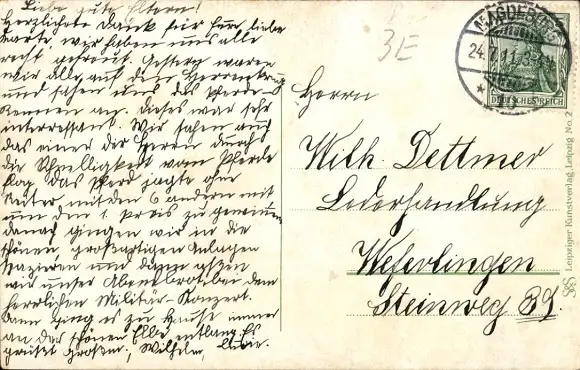 Liebe gute Eltern!
Herzlichsten Dank für Eure liebe
Karte, wir haben uns alle
recht gefreut. Gestern waren
wir alle auf dem Herrenkrug
und sahen uns das Pferde-
Rennen an. Dieses war sehr
interressant. Wir sahen auch
das einer der Herren durch
die Schnelligkeit vom Pferde
flog das Pferd jagte ohne
Reiter mit den 6 andern mit
um den 1. Preis zu gewinnen
danach gingen wir in die
schönen, großartigen Anlagen
spazieren und dann aßen
wir unser Abendbrot bei dem
herrlichen Militär-Konzert.
Dann ging es zu Hause immer
an der schönen Elbe entlang. Es
grüßt Wilhelm,
3E
MAGDEBURG
24.7.11.
DEUTSCHES REICH
Herrn
Wilh. Dettmer
Lederhandlung
Weferlingen
Steinweg 39.
Leipziger Kunstverlag, Leipzig No. 2